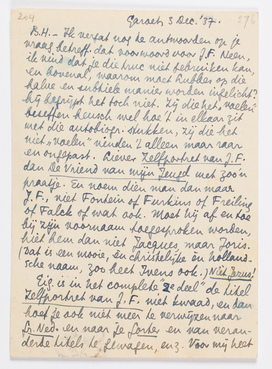 204
Garoet, 3 Dec. '37.
576
B.H.– Ik vergat nog te antwoorden op je
vraag betreff. dat voorwoord voor J.F. Neen,
ik vind dat je die truc niet gebruiken kan,
en bovenal, waarom moet Rubber op die
halve en subtiele manier worden ingelicht?
hij begrijpt het toch niet. Zij die het "voelen"
beseffen heusch wel hoe 't in elkaar zit
met die autobiogr. stukken, zij die het
niet "voelen" vinden 't alleen maar raar
en ongepast. Liever Zelfportret van J.F.
dan De Vriend van mijn Jeugd met zoo'n
praatje. En noem dien man dan maar
J.F., niet Fontein of Furkins of Freiling
of Falck of wat ook. Moet hij af en toe
bij zijn voornaam toegesproken worden,
hiet hem dan niet Jacques, maar Joris.
(Dat is een mooie, èn christelijke èn holland-
sche naam, zoo heet Ivens ook.) Niet Jocus!
Eig. is in het complete "2e deel" de titel
Zelfportret van J.F. niet kwaad, en dan
hoef je ook niet meer te verwijzen naar
Gr. Ned. en naar de Gorter en van veran-
derde titels te gewagen, enz. Voor mij heet